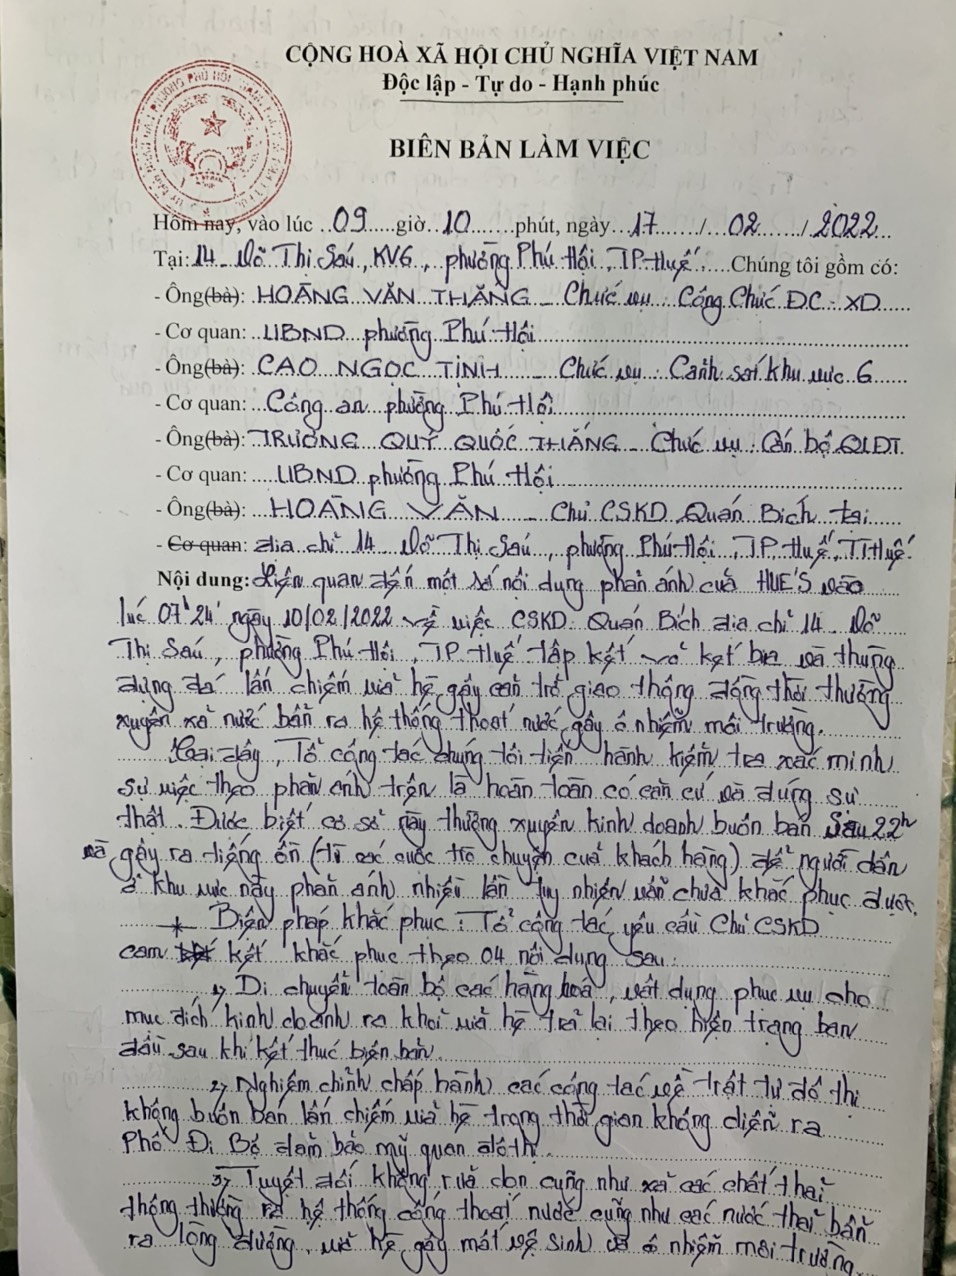 CỘNG HOÀ XÃ HỘI CHỦ NGHĨA VIỆT NAM
Độc lập - Tự do - Hạnh phúc
BIÊN BẢN LÀM VIỆC
Hôm nay, vào lúc 09 giờ 10 phút, ngày 17 / 02 / 2022
Tại: 14 Võ Thị Sáu, KV6, phường Phú Hội, TP Huế. Chúng tôi gồm có:
- Ông(bà): HOÀNG VĂN THẮNG - Chức vụ Công Chức ĐC-XD
- Cơ quan: UBND phường Phú Hội
- Ông(bà): CAO NGỌC TỊNH - Chức vụ: Cảnh sát khu vực 6
- Cơ quan: Công an phường Phú Hội
- Ông(bà): TRƯƠNG QUÝ QUỐC THẮNG - Chức vụ Cán bộ QLĐT
- Cơ quan: UBND phường Phú Hội
- Ông(bà): HOÀNG VĂN - Chủ CSKD Quán Bích tại
- Cơ quan: địa chỉ 14 Võ Thị Sáu, phường Phú Hội, TP. Huế, TT Huế
Nội dung: Liên quan đến một số nội dung phản ánh của HUE'S vào
lúc 07h24' ngày 10/02/2022 về việc CSKD Quán Bích địa chỉ 14 Võ
Thị Sáu, phường Phú Hội, TP Huế tập kết vỏ két bia và thùng
đựng đá lấn chiếm vỉa hè gây cản trở giao thông đồng thời thường
xuyên xả nước bẩn ra hệ thống thoát nước gây ô nhiễm môi trường.
Tại đây, Tổ công tác chúng tôi tiến hành kiểm tra xác minh
sự việc theo phản ánh trên là hoàn toàn có căn cứ và đúng sự
thật. Được biết cơ sở này thường xuyên kinh doanh buôn bán sau 22h
và gây ra tiếng ồn (từ các cuộc trò chuyện của khách hàng) để người dân
ở khu vực này phản ánh nhiều lần tuy nhiên vẫn chưa khắc phục được.
* Biện pháp khắc phục: Tổ công tác yêu cầu Chủ CSKD
cam kết khắc phục theo 04 nội dung sau:
1, Di chuyển toàn bộ các hàng hoá, vật dụng phục vụ cho
mục đích kinh doanh ra khỏi vỉa hè trả lại theo hiện trạng ban
đầu sau khi kết thúc biên bản.
2, Nghiêm chỉnh chấp hành các công tác về trật tự đô thị
không buôn bán lấn chiếm vỉa hè trong thời gian không diễn ra
Phố Đi Bộ đảm bảo mỹ quan đô thị.
3, Tuyệt đối không rửa dọn cũng như xả các chất thải
thông thường ra hệ thống cống thoát nước cũng như các nước thải bẩn
ra lòng đường, vỉa hè gây mất vệ sinh và ô nhiễm môi trường.